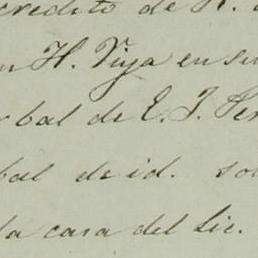 credito de H.
H. Vija en su
bal de E. J.
bal de id. so
la casa del Lic.